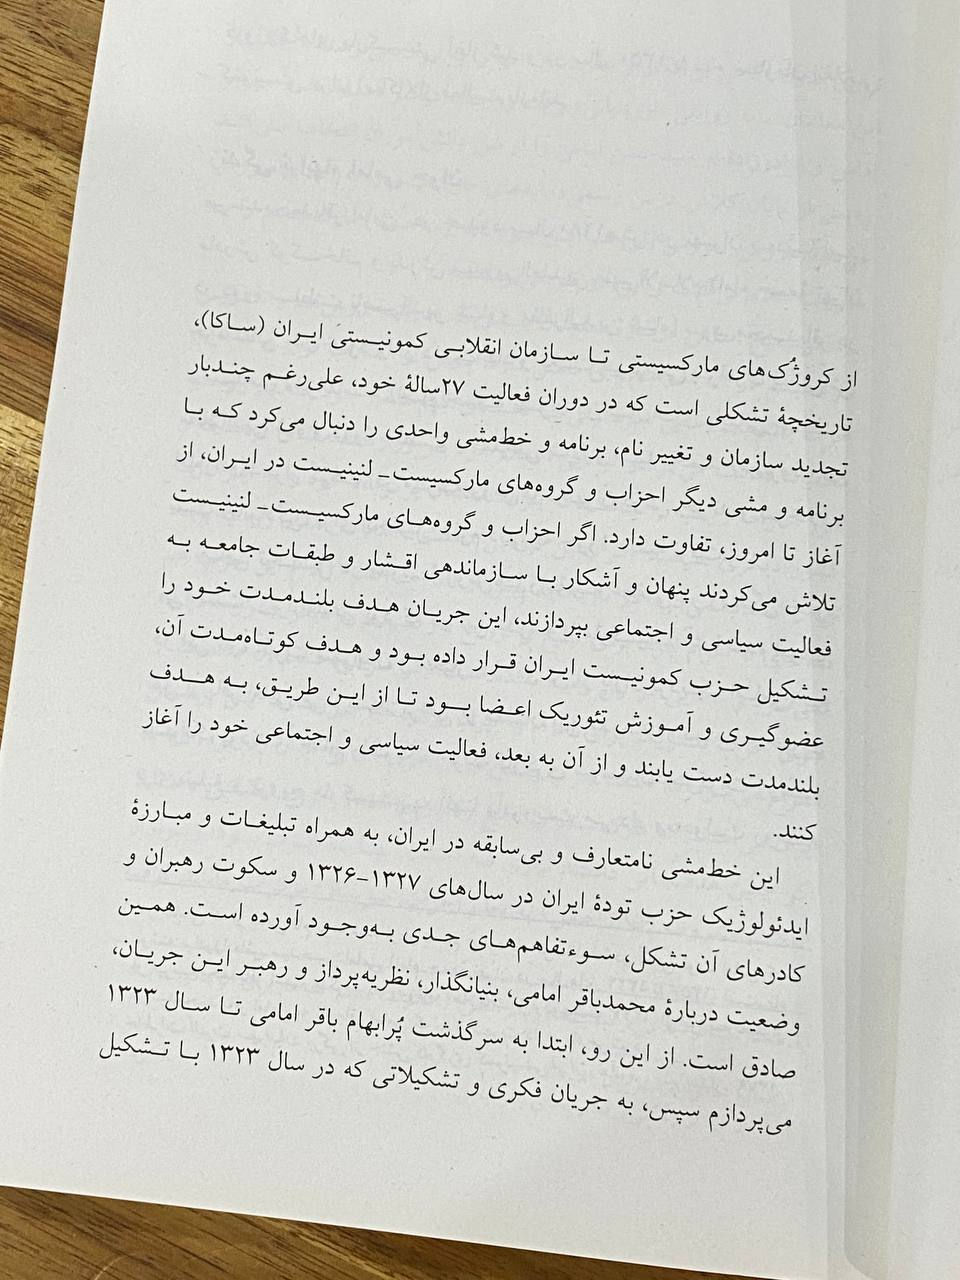 از کروژُک‌های مارکسیستی تا سازمان انقلابی کمونیستی ایران (ساکا)،
تاریخچهٔ تشکلی است که در دوران فعالیت ۲۷سالهٔ خود، علی‌رغم چندبار
تجدید سازمان و تغییر نام، برنامه و خط‌مشی واحدی را دنبال می‌کرد که با
برنامه و مشی دیگر احزاب و گروه‌های مارکسیست_لنینیست در ایران، از
آغاز تا امروز، تفاوت دارد. اگر احزاب و گروه‌های مارکسیست_لنینیست
تلاش می‌کردند پنهان و آشکار با سازماندهی اقشار و طبقات جامعه به
فعالیت سیاسی و اجتماعی بپردازند، این جریان هدف بلندمدت خود را
تشکیل حزب کمونیست ایران قرار داده بود و هدف کوتاه‌مدت آن،
عضوگیری و آموزش تئوریک اعضا بود تا از این طریق، به هدف
بلندمدت دست یابند و از آن به بعد، فعالیت سیاسی و اجتماعی خود را آغاز
کنند.
این خط‌مشی نامتعارف و بی‌سابقه در ایران، به همراه تبلیغات و مبارزهٔ
ایدئولوژیک حزب تودهٔ ایران در سال‌های ۱۳۲۷-۱۳۲۶ و سکوت رهبران و
کادرهای آن تشکل، سوءتفاهم‌های جدی به‌وجود آورده است. همین
وضعیت دربارهٔ محمدباقر امامی، بنیانگذار، نظریه‌پرداز و رهبر این جریان،
صادق است. از این رو، ابتدا به سرگذشت پُرابهام باقر امامی تا سال ۱۳۲۳
می‌پردازم سپس، به جریان فکری و تشکیلاتی که در سال ۱۳۲۳ با تشکیل